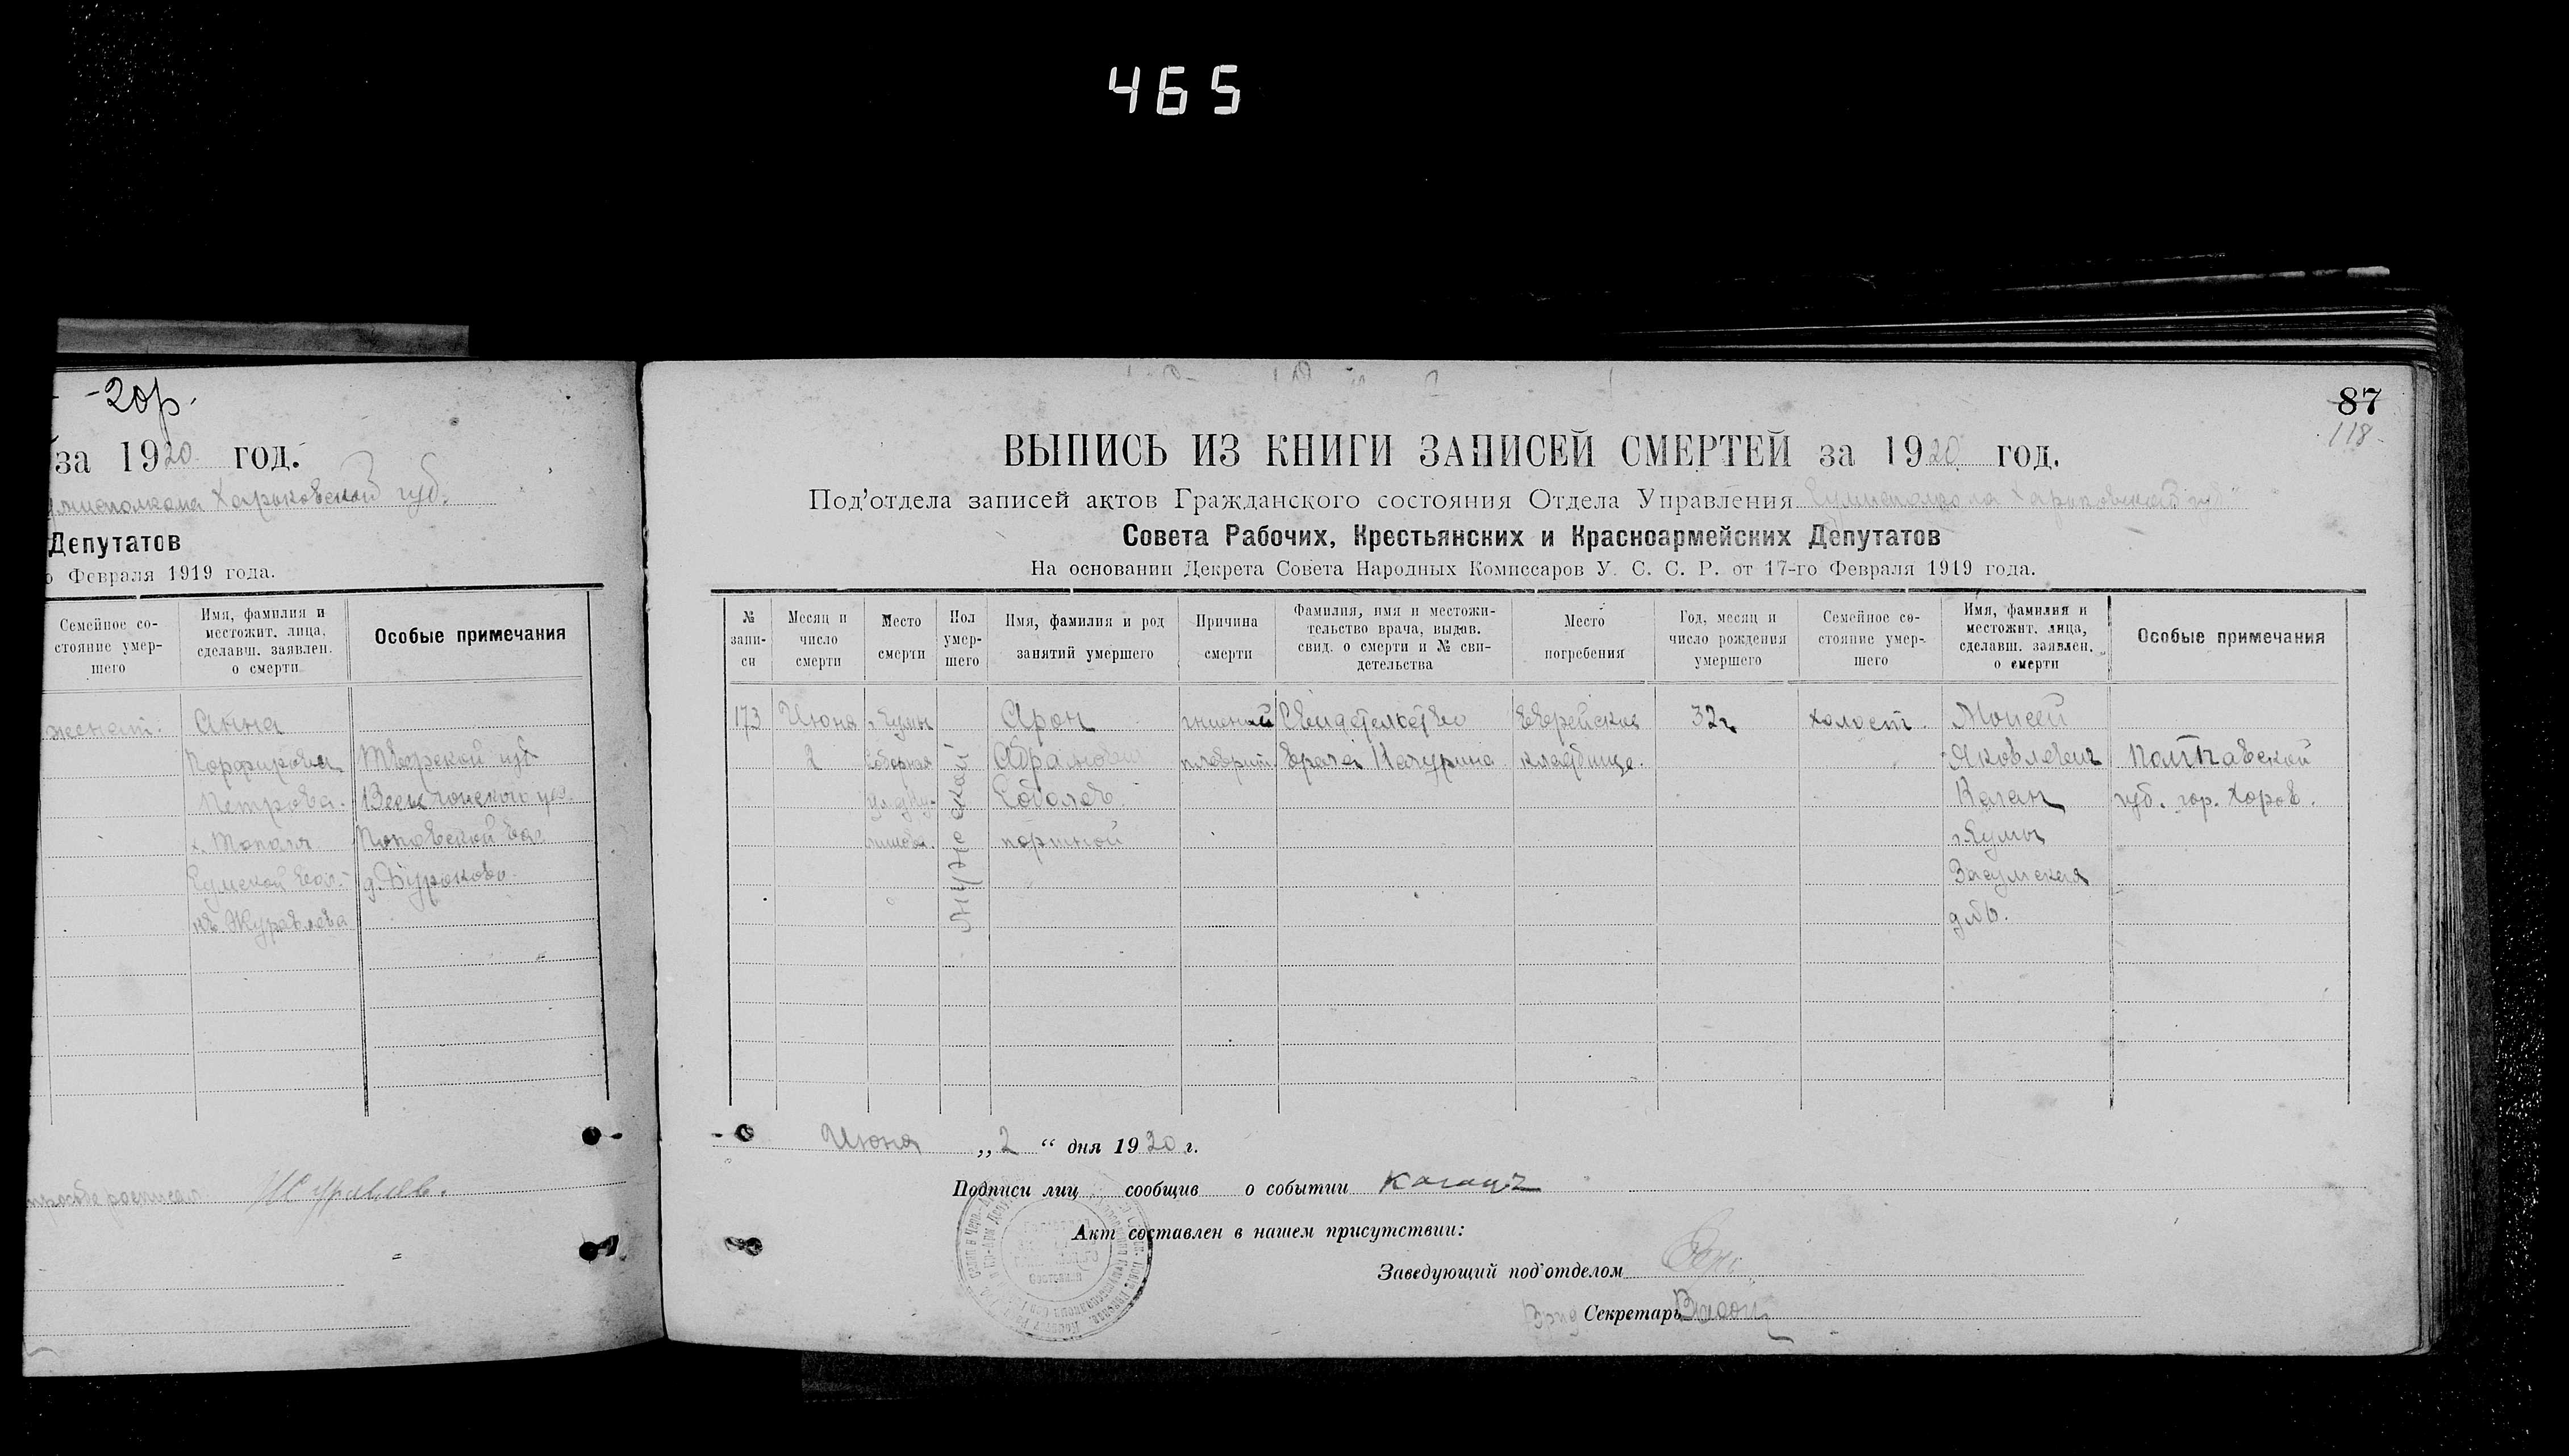 465
-20р.
за 1920 год.
Харьковской губ.
Депутатов
Февраля 1919 года.
Семейное со-
стояние умер-
шего
Имя, фамилия и
местожит. лица,
сделавш. заявлен.
о смерти
Особые примечания
женат.
Анна
Порфировна
Петрова.
Сумской вол.
Журавлева
Тверской губ
Весьегонского уез.
87
118
ВЫПИСЬ ИЗ КНИГИ ЗАПИСЕЙ СМЕРТЕЙ за 1920 год.
Под'отдела записей актов Гражданского состояния Отдела Управления Сумисполкома Харьковской губ
Совета Рабочих, Крестьянских и Красноармейских Депутатов
На основании Декрета Совета Народных Комиссаров У. С. С. Р. от 17-го Февраля 1919 года.
№
запи-
си
Месяц и
число
смерти
Место
смерти
Пол
умер-
шего
Имя, фамилия и род
занятий умершего
Причина
смерти
Фамилия, имя и местожи-
тельство врача, выдав.
свид. о смерти и № сви-
детельства
Место
погребения
Год, месяц и
число рождения
умершего
Семейное со-
стояние умер-
шего
Имя, фамилия и
местожит. лица,
сделавш. заявлен.
о смерти
Особые примечания
173
Июня
2
г Сумы
Соборная
мужской
Арон
Абрамович
Соболев.
портной
гнойный
плеврит
Свидетельство
врача
Еврейское
кладбище.
32 г
холост.
Моисей
Яковлевич
Каган
г Сумы
Засумская
Полтавской
губ. гор. Хорол.
Июня „2“ дня 1920 г.
Подписи лиц сообщив о событии
Акт составлен в нашем присутствии:
Заведующий под'отделом
Врид Секретарь